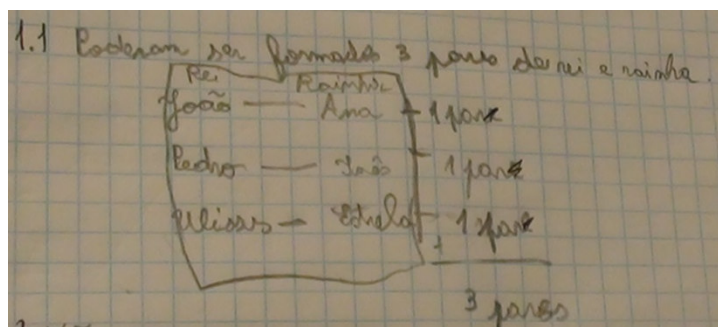 1.1 Poderam ser formados 3 pares de rei e rainha.
Rei Rainha
João — Ana 1 par
Pedro — Inês 1 par
Ulisses — Estrela 1 par
+
3 pares